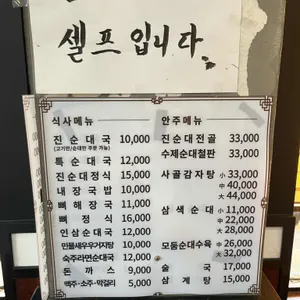 셀프입니다.
식사메뉴
진순대국 10,000
(고기만/순대만 주문 가능)
특순대국 12,000
진순대정식 15,000
내장국밥 10,000
뼈해장국 11,000
뼈정식 16,000
인삼순대국 12,000
민물새우우거지탕 10,000
숙주라면순대국 12,000
돈까스 9,000
맥주·소주·막걸리 5,000
안주메뉴
진순대전골 33,000
수제순대철판 33,000
사골감자탕 소 33,000
중 40,000
대 44,000
삼색순대 소 11,000
중 22,000
대 28,000
모둠순대수육 중 26,000
대 32,000
술국 17,000
삼계탕 15,000